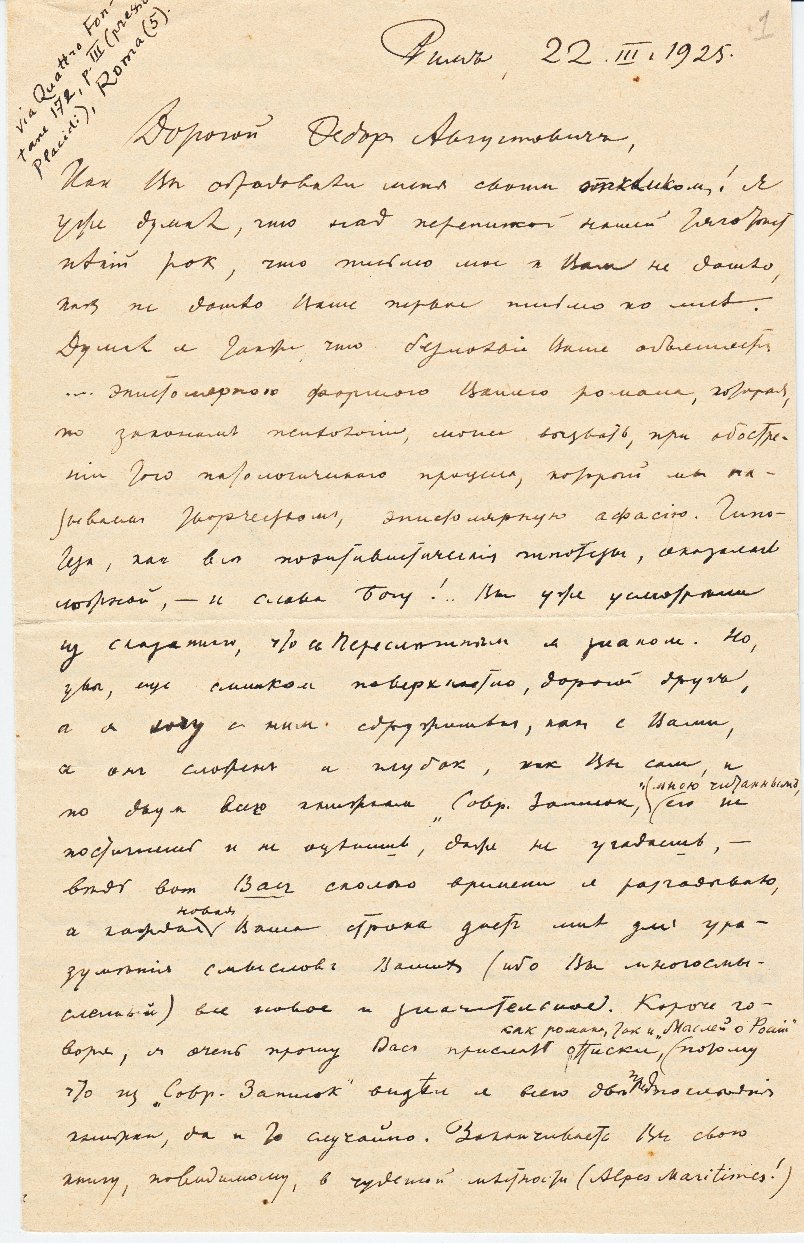 via Quattro Fon-
tane 172, p. III (presso
Placidi), Roma (5).
1
Римъ, 22.III.1925.
Дорогой Федоръ Августовичъ,
Какъ Вы обрадовали меня своимъ откликомъ! Я
уже думалъ, что над перепиской нашей тяготѣетъ
нѣкій рок, что письмо мое к Вам не дошло,
какъ не дошло Ваше первое письмо ко мнѣ.
Думалъ я также, что безмолвіе Ваше объясняется
... эпистолярною формою Вашего романа, которая,
по законамъ психологіи, могла вызвать, при обостре-
ніи того патологическаго процесса, который мы на-
зываемъ творчествомъ, эпистолярную афазію. Гипо-
теза, какъ всѣ позитивистическія гипотезы, оказалась
ложной, — и слава Богу!.. Вы уже усмотрѣли
из сказаннаго, что съ Переслѣгинымъ я знаком. Но,
увы, еще слишком поверхностно, дорогой другъ,
а я хочу с ним сдружиться, какъ с Вами,
а онъ сложенъ и глубок, как Вы сам, и
по двум всего книжкамъ „Совр. Записок", (мною читаннымъ,) его не
постигнешь и не оцѣнишь, даже не угадаешь, —
вѣдь вот Васъ сколько времени я разгадываю,
а каждая новая Ваша строка даетъ мнѣ для ура-
зумѣнія смысловъ Вашихъ (ибо Вы многосмы-
сленный) все новое и значительное. Короче го-
воря, я очень прошу Васъ прислать оттиски, как романа, так и „Мыслей о Россіи" (потому
что из „Совр. Записок" видѣл я всего двѣ предпослѣднія
книжки, да и то случайно. Заканчиваете Вы свою
книгу, повидимому, в чудесной мѣстности (Alpes Maritimes!)